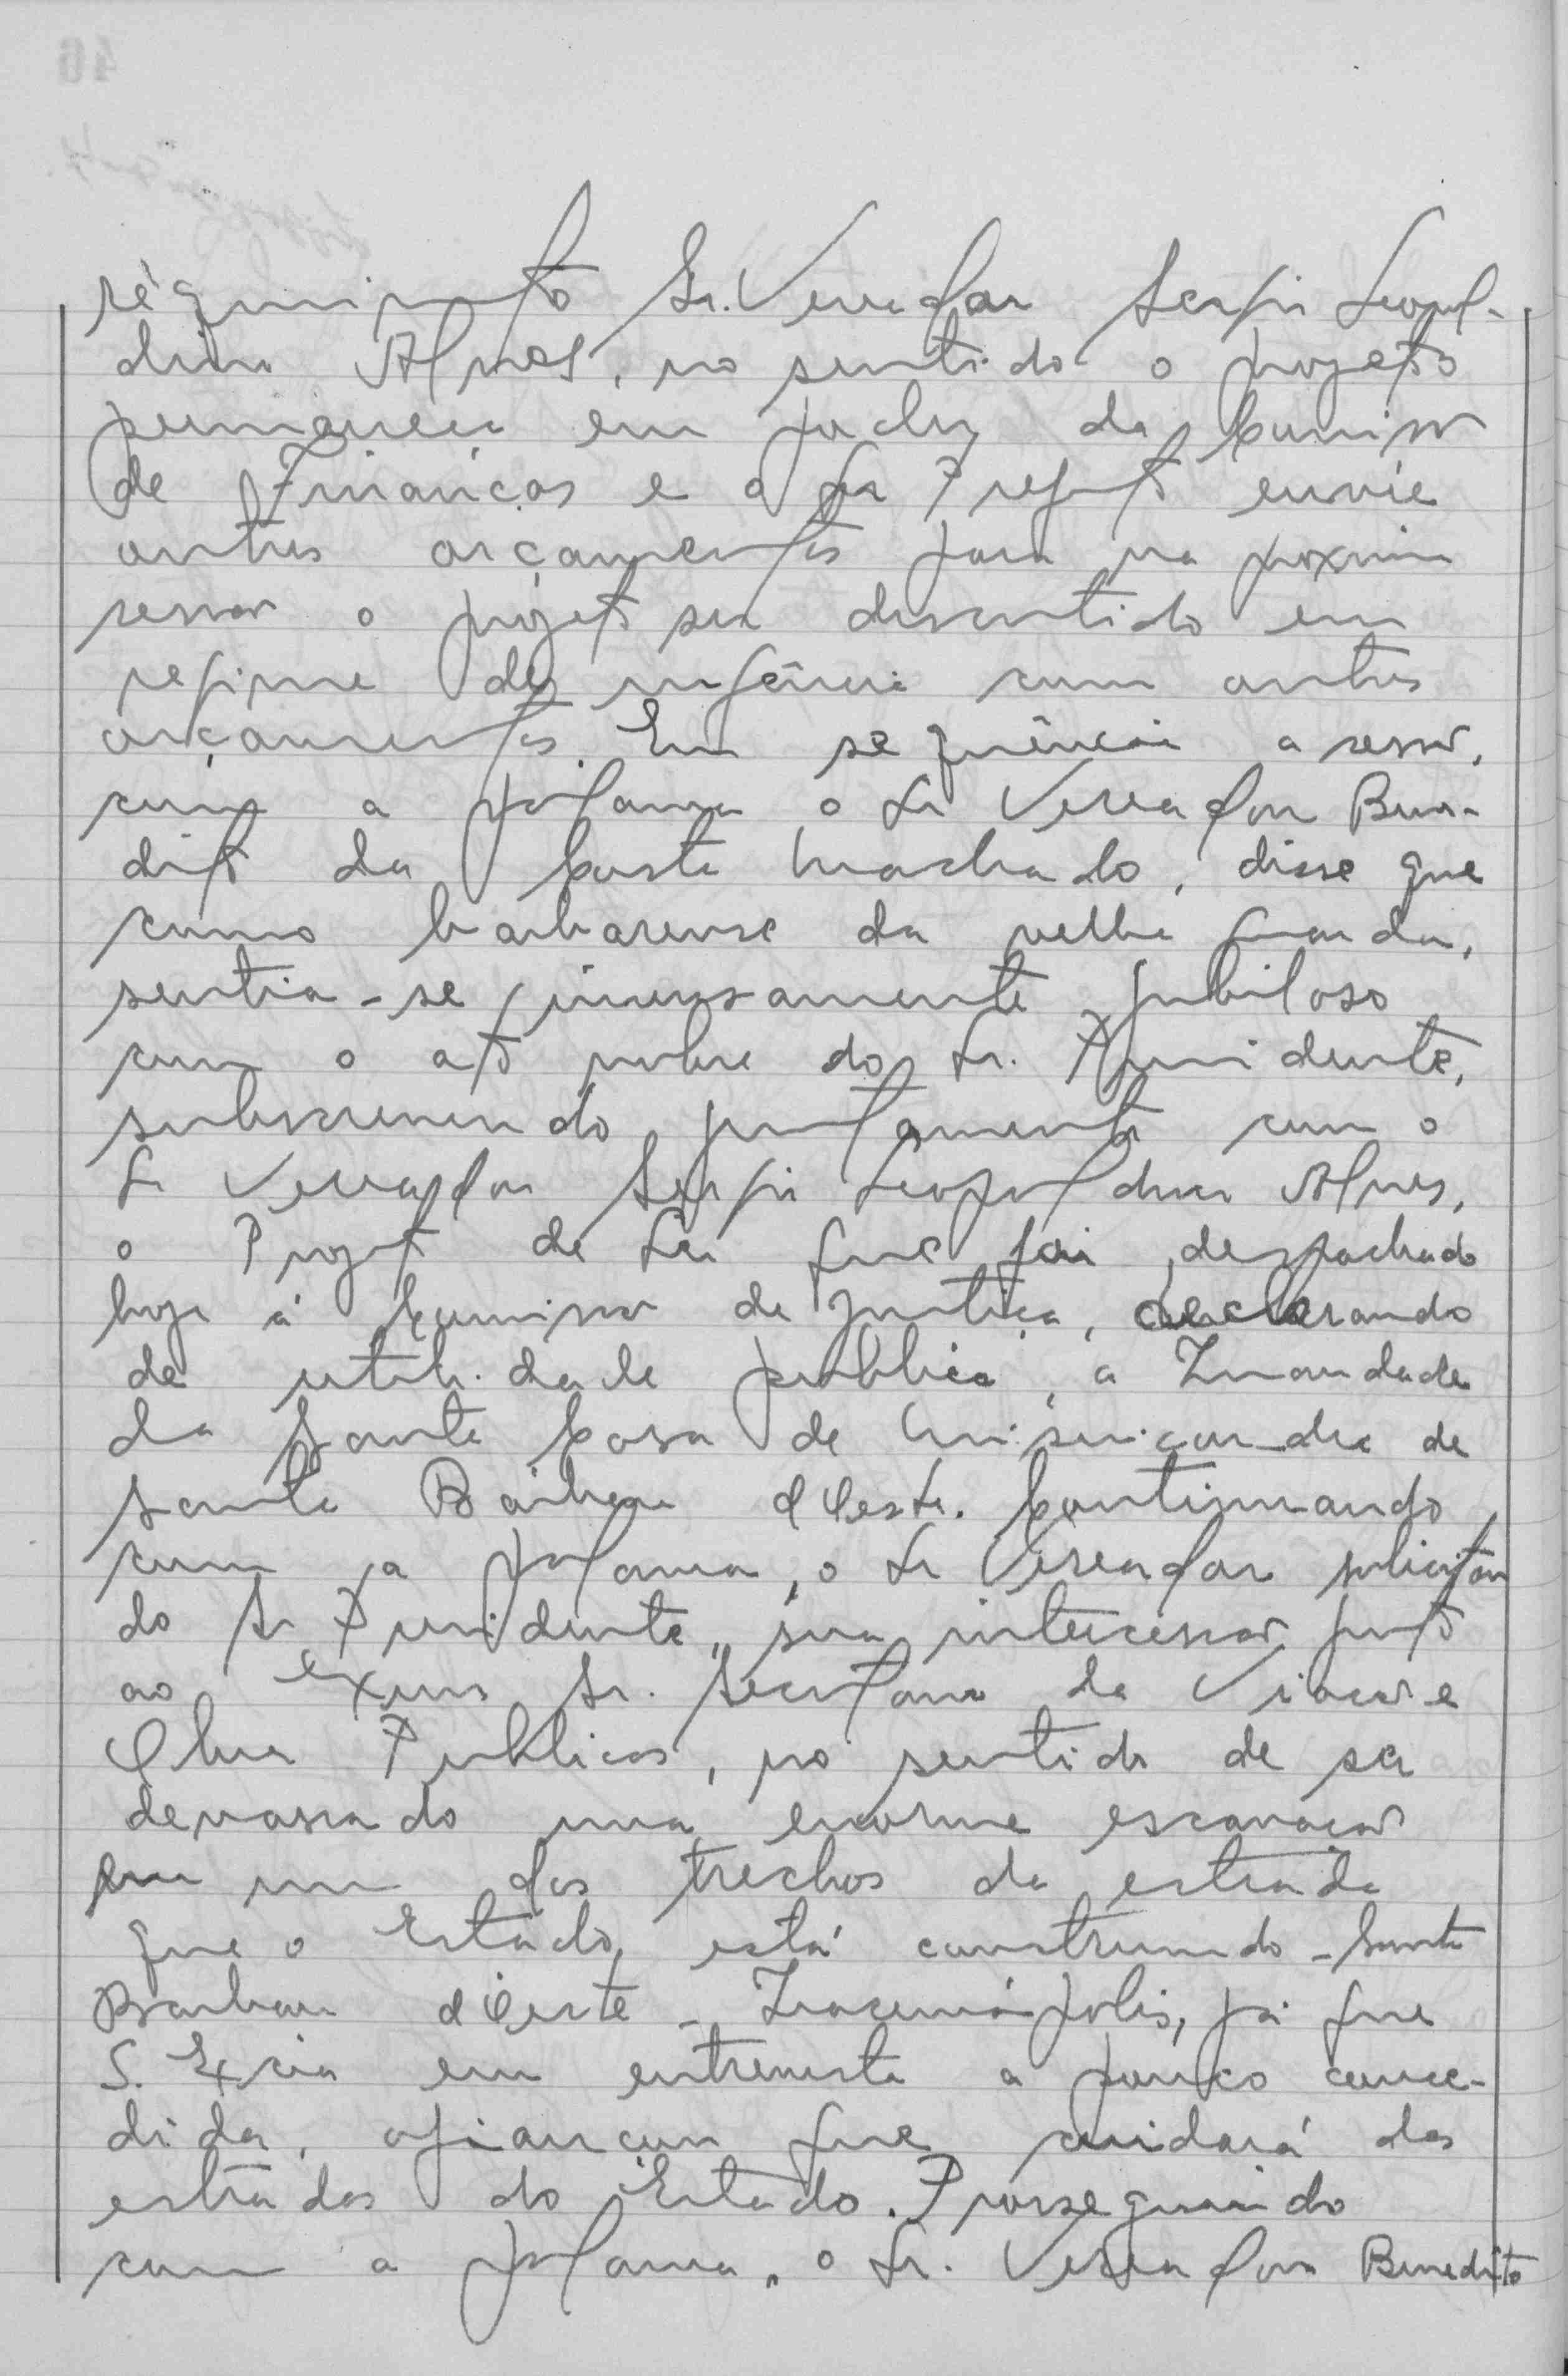 requerimento Sr. Vereador Sergio Leopol-
dino Alves, no sentido o projeto
permaneça em poder da Comissão
de Finanças e o Sr Prefeito envie
outros orçamentos para na proxima
sessão o projeto ser discutido em
regime de urgência com outros
orçamentos. Em sequência a sessão,
com a palavra o Sr Vereador Bene-
dito da Costa Machado, disse que
como barbarense da velha guarda,
sentia-se imensamente jubiloso
com o ato nobre do Sr. Presidente,
subscrevendo juntamente com o
Sr Vereador Sergio Leopoldino Alves,
o Projeto de Lei que foi despachado
hoje á Comissão de Justiça, declarando
de utilidade publica, a Irmandade
da Santa Casa de Misericordia de
Santa Bárbara d'Oeste. Continuando
com a palavra, o Sr Vereador solicitou
do Sr Presidente, sua intercessão junto
ao Exmo Sr. Secretario da Viação e
Obras Publicas, no sentido de ser
uma enorme escavação
em um dos trechos da estrada
que o Estado, está construindo - Santa
Barbara d'Oeste - Iracemápolis, já que
S. Excia em entrevista a pouco conce-
dida, afiançou que cuidará das
estradas do Estado. Prosseguindo
com a palavra, o Sr. Vereador Benedito